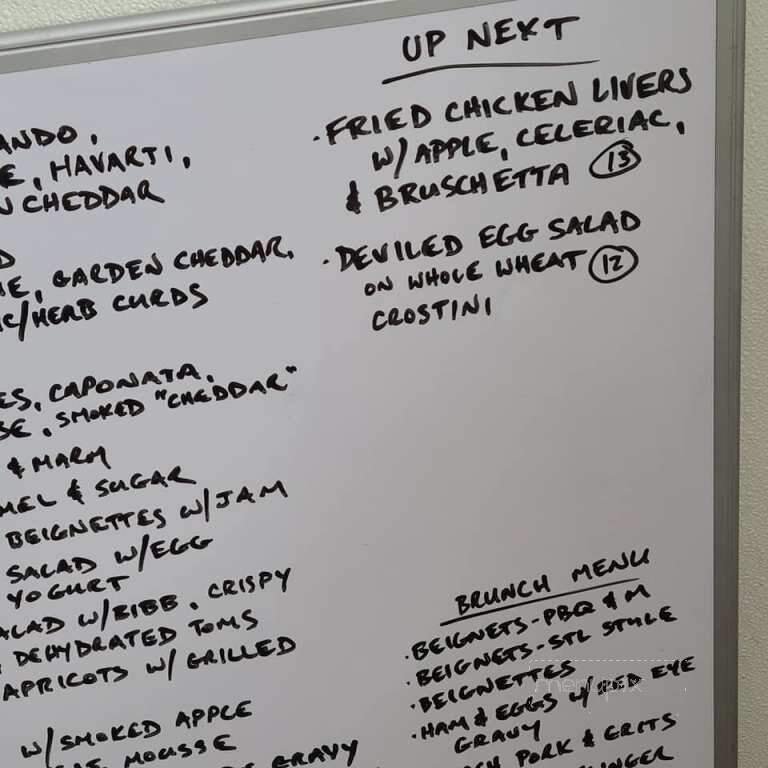 UP NEXT
· FRIED CHICKEN LIVERS
W/ APPLE, CELERIAC,
& BRUSCHETTA 13
· DEVILED EGG SALAD
ON WHOLE WHEAT 12
CROSTINI
ANDO,
E, HAVARTI,
N CHEDDAR
D
HE, GARDEN CHEDDAR,
IC/HERB CURDS
ES, CAPONATA,
SE, SMOKED "CHEDDAR"
& MARM
MEL & SUGAR
BEIGNETTES W/JAM
SALAD W/EGG
YOGURT
ALAD W/BIBB, CRISPY
DEHYDRATED TOMS
APRICOTS W/ GRILLED
W/SMOKED APPLE
MOUSSE
GRAVY
BRUNCH MENU
· BEIGNETS-PBQ & M
· BEIGNETS-STL STYLE
· BEIGNETTES
· HAM & EGGS W/ RED EYE
GRAVY
PORK & GRITS
LINGER
menupix